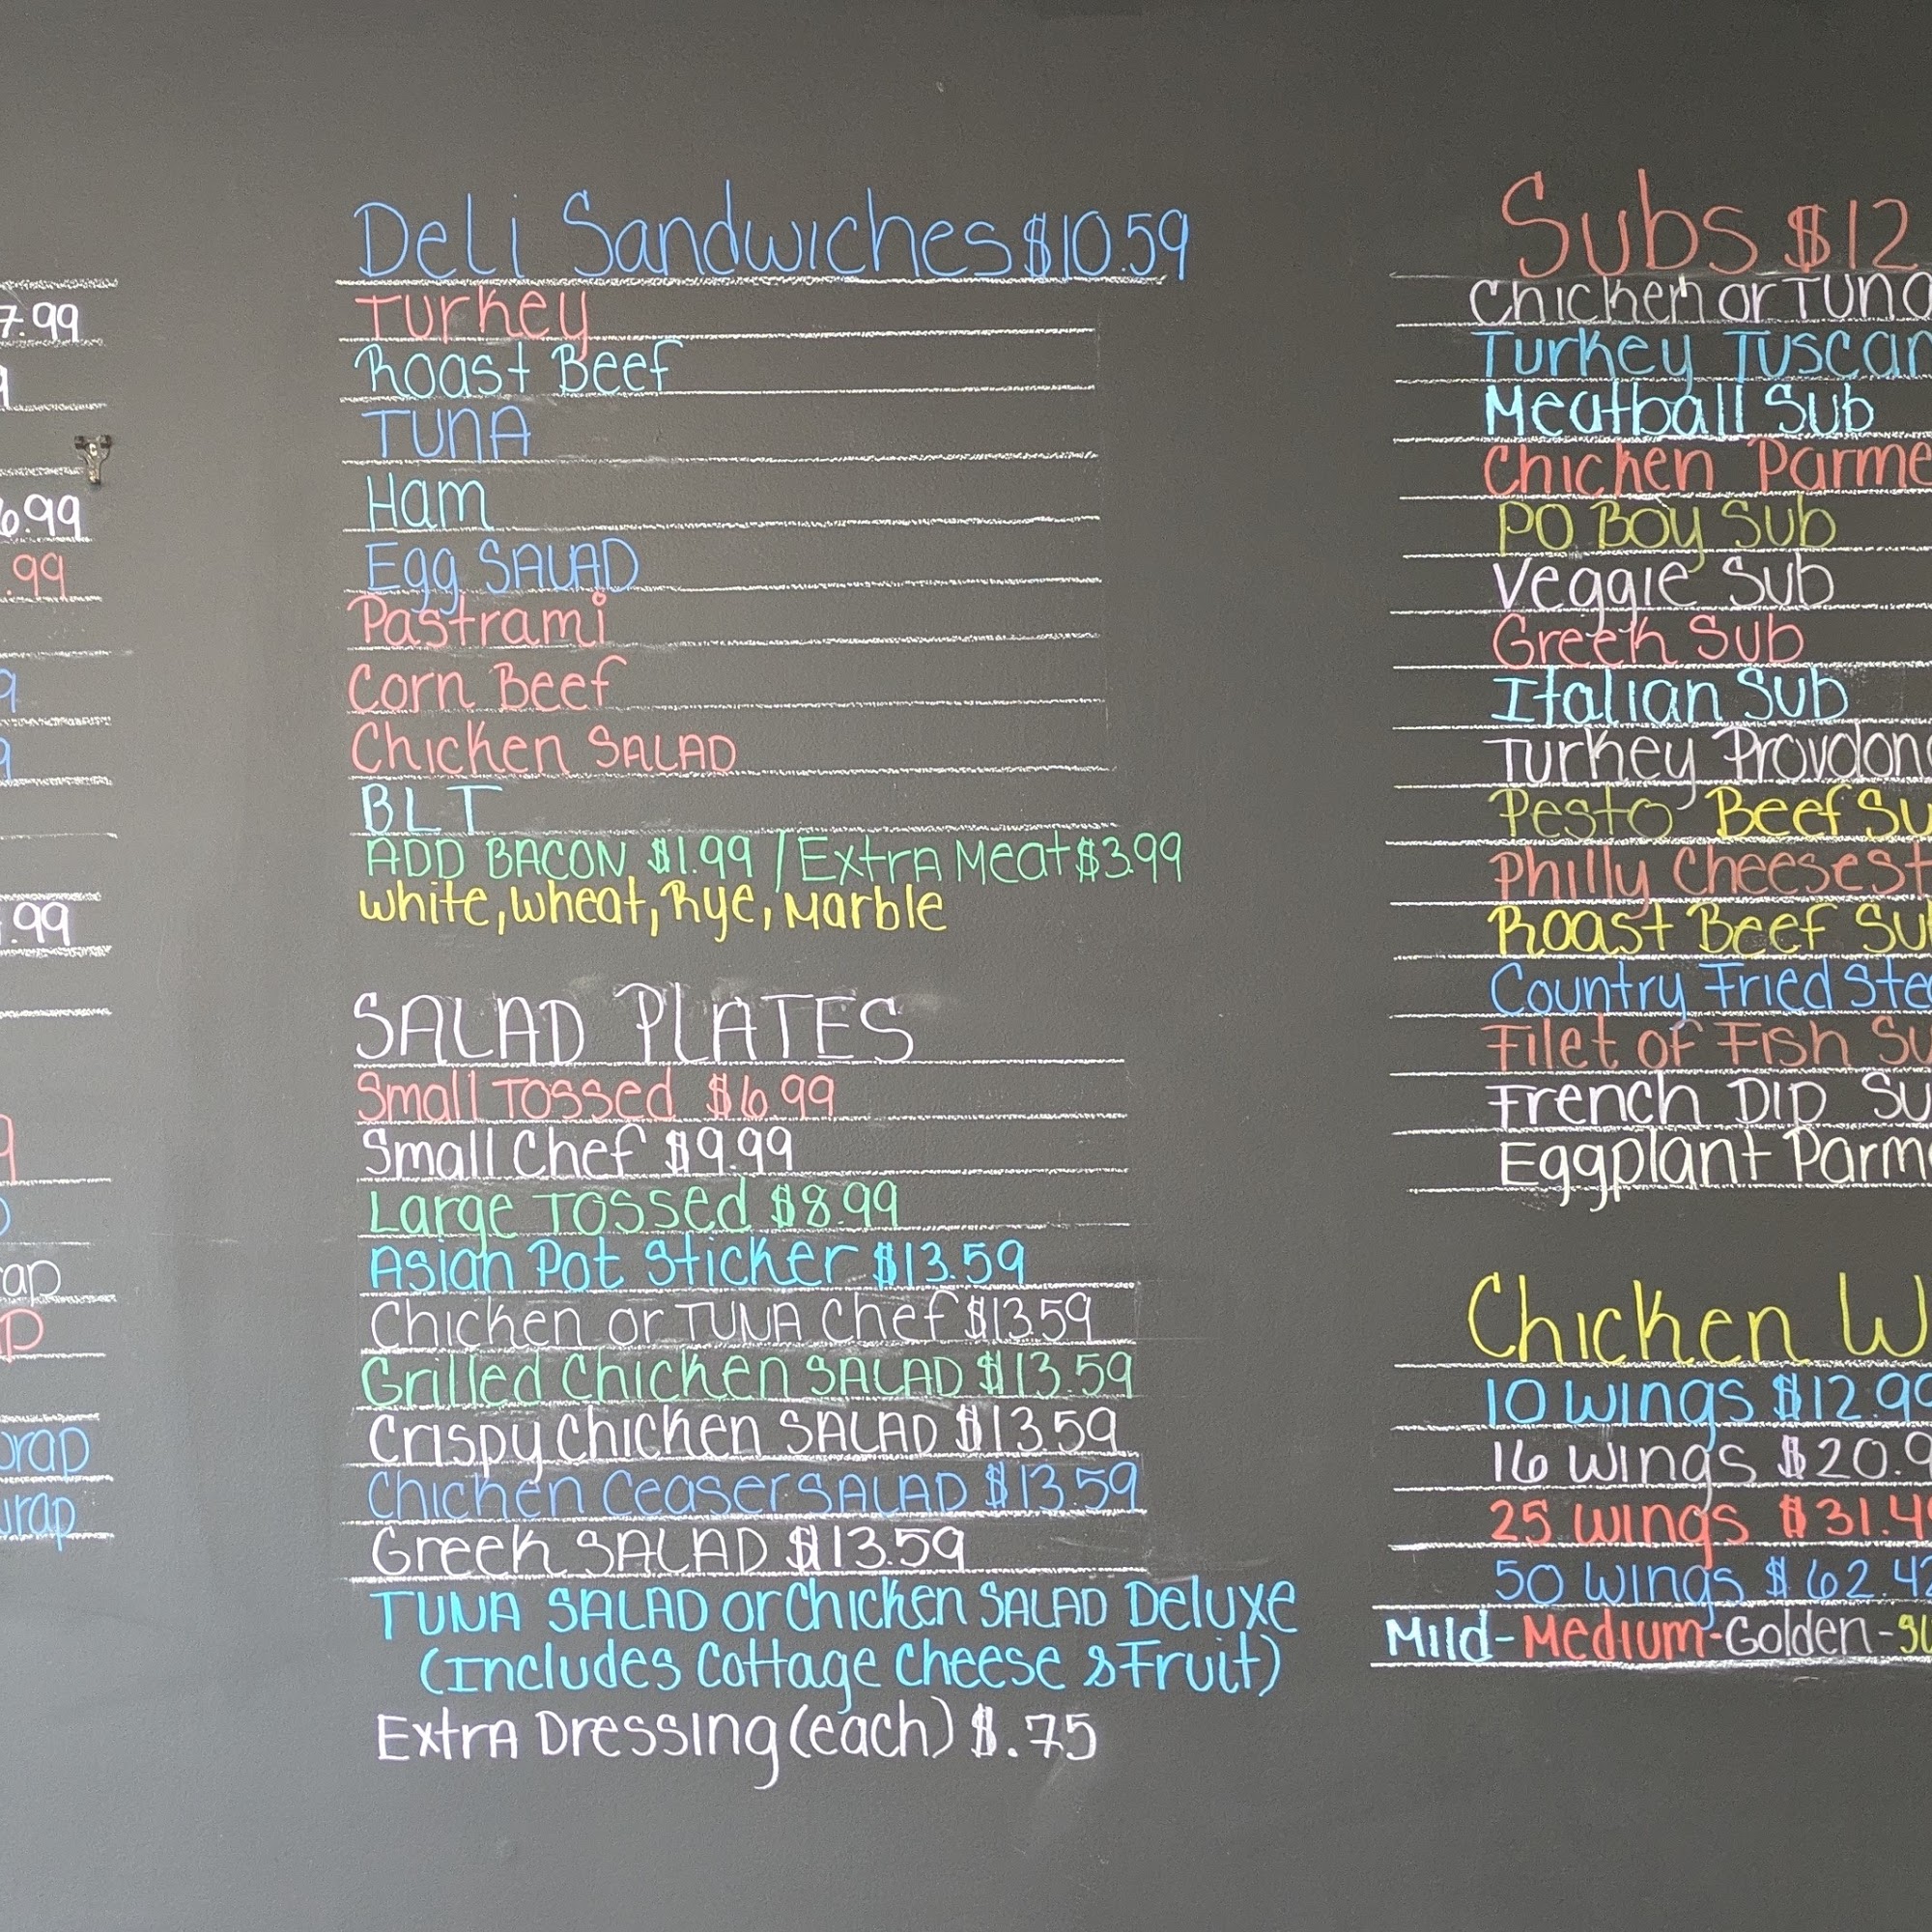 7.99
9
6.99
.99
9
9
.99
9
ap
P
wrap
wrap
Deli Sandwiches $10.59
Turkey
Roast Beef
TUNA
Ham
Egg SALAD
Pastrami
Corn Beef
Chicken SALAD
BLT
ADD BACON $1.99 / Extra Meat $3.99
White, Wheat, Rye, Marble
SALAD PLATES
Small Tossed $6.99
Small Chef $9.99
Large Tossed $8.99
Asian Pot Sticker $13.59
Chicken or TUNA Chef $13.59
Grilled Chicken SALAD $13.59
Crispy Chicken SALAD $13.59
Chicken Ceaser SALAD $13.59
Greek SALAD $13.59
TUNA SALAD or Chicken SALAD Deluxe
(Includes Cottage Cheese & Fruit)
Extra Dressing (each) $.75
Subs $12
Chicken or Tuna
Turkey Tuscan
Meatball Sub
Chicken Parme
PO Boy Sub
Veggie Sub
Greek Sub
Italian Sub
Turkey Provolon
Pesto Beef Su
Philly Cheesest
Roast Beef Sub
Country Fried Stea
Filet of Fish Su
French Dip Su
Eggplant Parm
Chicken W
10 Wings $12.99
16 Wings $20.9
25 Wings $31.4
50 Wings $62.42
Mild-Medium-Golden-